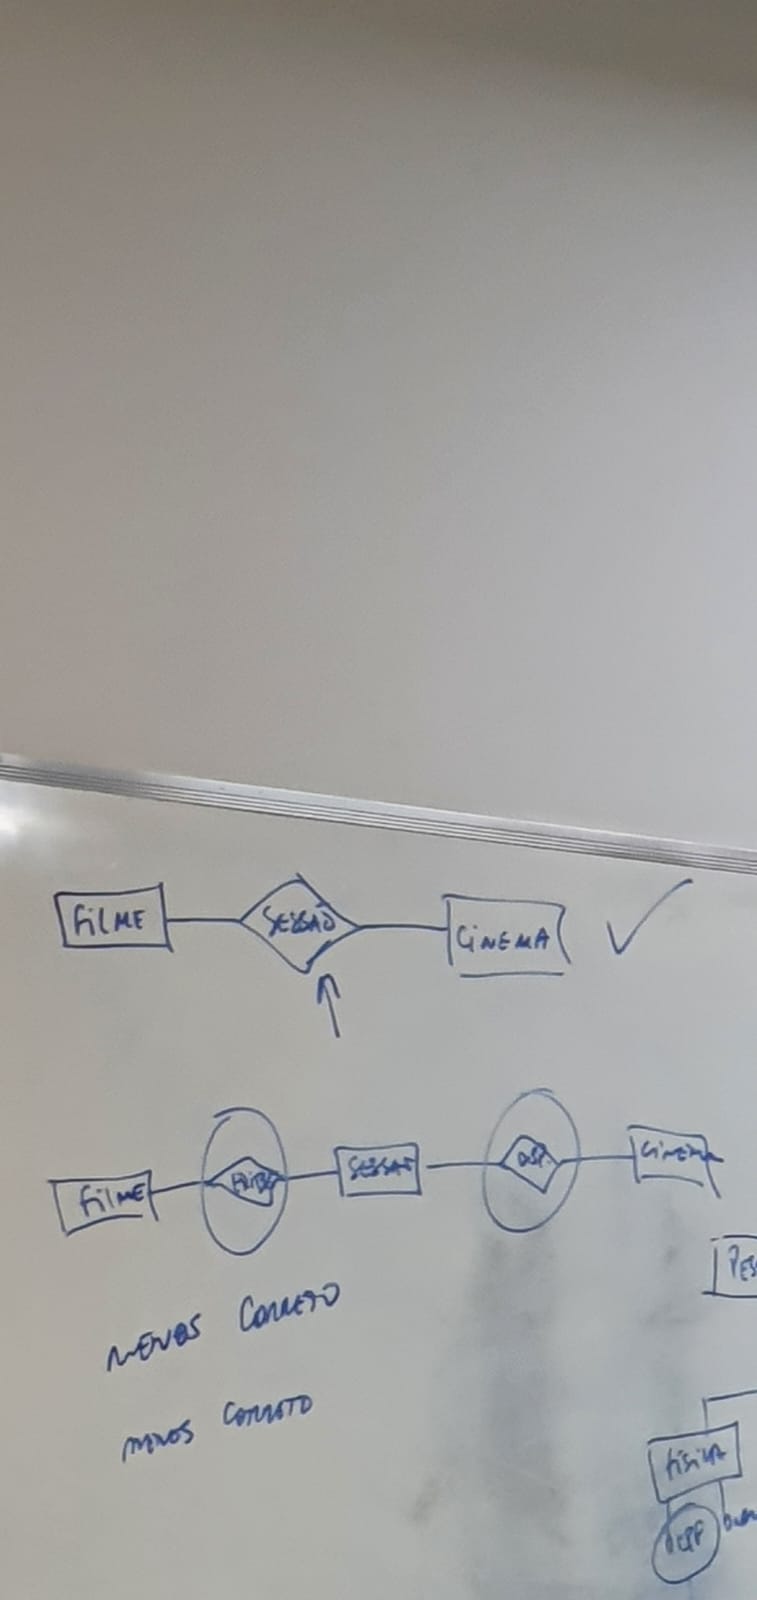 FILME SESSÃO CINEMA
FILME EXIBE SESSÃO DISP. CINEMA
MENOS CORRETO
PES
MENOS CORRETO
FÍSICA
CPF